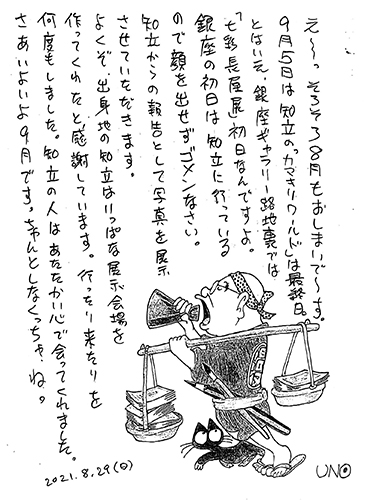 え〜っ そろそろ8月もおしまいで〜す。
9月5日は知立の「カマキリワールド」は最終日。
とはいえ、銀座ギャラリー路地裏では
「七彩長屋展」初日なんですよ。
銀座の初日は知立に行っている
ので顔を出せずゴメンなさい。
知立からの報告として写真を展示
させていただきます。
よくぞ、出身地の知立はりっぱな展示会場を
作ってくれたと感謝しています。行ったり来たりを
何度もしました。知立の人はあたたかい心で会ってくれました。
さあいよいよ9月です。ちゃんとしなくっちゃ、ね。
2021.8.29(日)
UNO